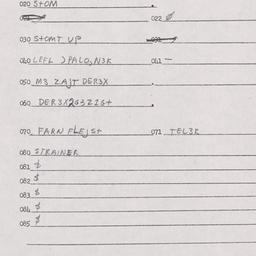 020 STOM
022 $
030 STOMT UP
040 LEFL JPALO,N3K 041 –
050 M3 ZAJT DER3X
060 DER3X2G3Z1G+
070 FARN FLEJST 071 TEL3R
080 STRAINER
081 $
082 $
083 $
084 $
085 $